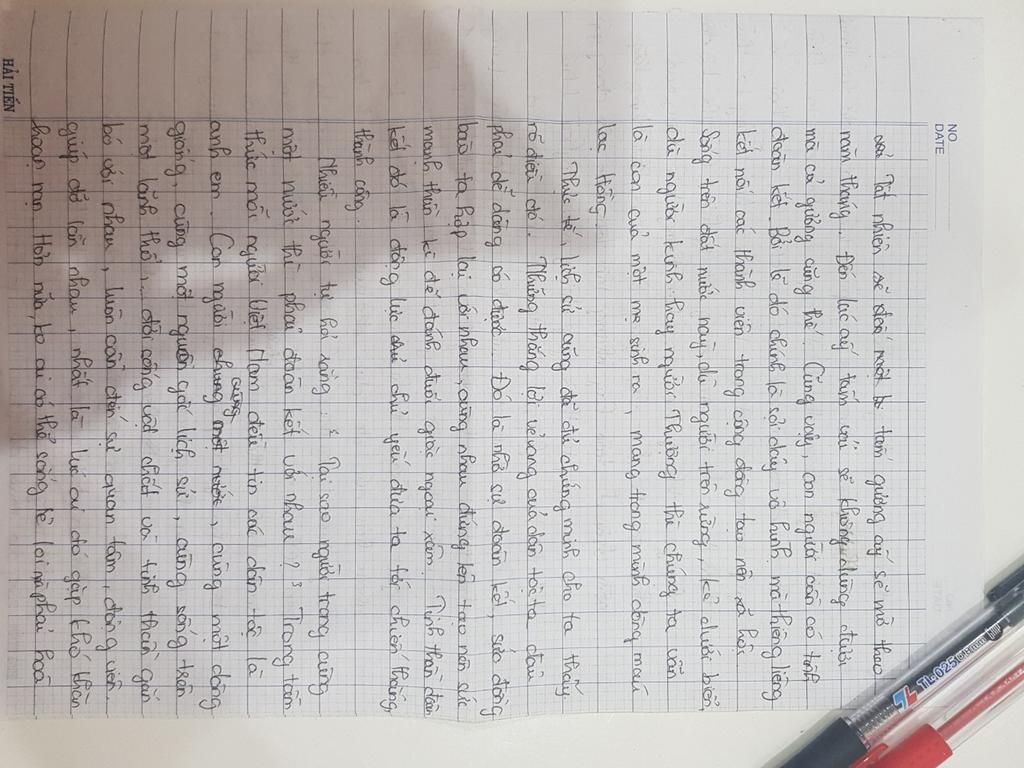 NO
DATE
xỏ! Tất nhiên sẽ đoá một tấm gương ấy sẽ mờ theo
năm tháng. Đến lúc ấy tấm vải sẽ không dùng được
mà cả gương cũng thế. Cũng vậy, con người cần có tình
đoàn kết. Bởi lẽ đó chính là sợi dây vô hình mà thiêng liêng
kết nối các thành viên trong cộng đồng tạo nên xã hội
Sống trên đất nước này, dù người trên rừng, kẻ dưới biển,
dù người kinh hay người Thượng thì chúng ta vẫn
là con của một mẹ sinh ra, mang trong mình dòng máu
Lạc Hồng.
Thực tế, lịch sử cũng đã đủ chứng minh cho ta thấy
rõ điều đó. Những thắng lợi vẻ vang của dân tộc ta đâu
phải dễ dàng có được. Đó là nhờ sự đoàn kết, sức đồng
bào ta hợp lại với nhau, cùng nhau đứng lên tạo nên sức
mạnh thần kì để đánh đuổi giặc ngoại xâm. Tinh thần đoàn
kết đó là động lực chủ yếu đưa ta tới chiến thắng,
thành công.
Nhiều người tự hỏi rằng: "Tại sao người trong cùng
một nước thì phải đoàn kết với nhau?" Trong tâm
thức mỗi người Việt Nam đều tin các dân tộc là
anh em. Con người chung một nước, cùng một dòng
cùng
giống, cùng một nguồn gốc lịch sử, cùng sống trên
một lãnh thổ,... đời sống vật chất và tinh thần gắn
bó với nhau, luôn cần đến sự quan tâm, động viên
giúp đỡ lẫn nhau, nhất là lúc ai đó gặp khó khăn
hoạn nạn. Hơn nữa, ko ai có thể sống lẻ loi mà phải hoà
HẢI TIẾN
TL-025